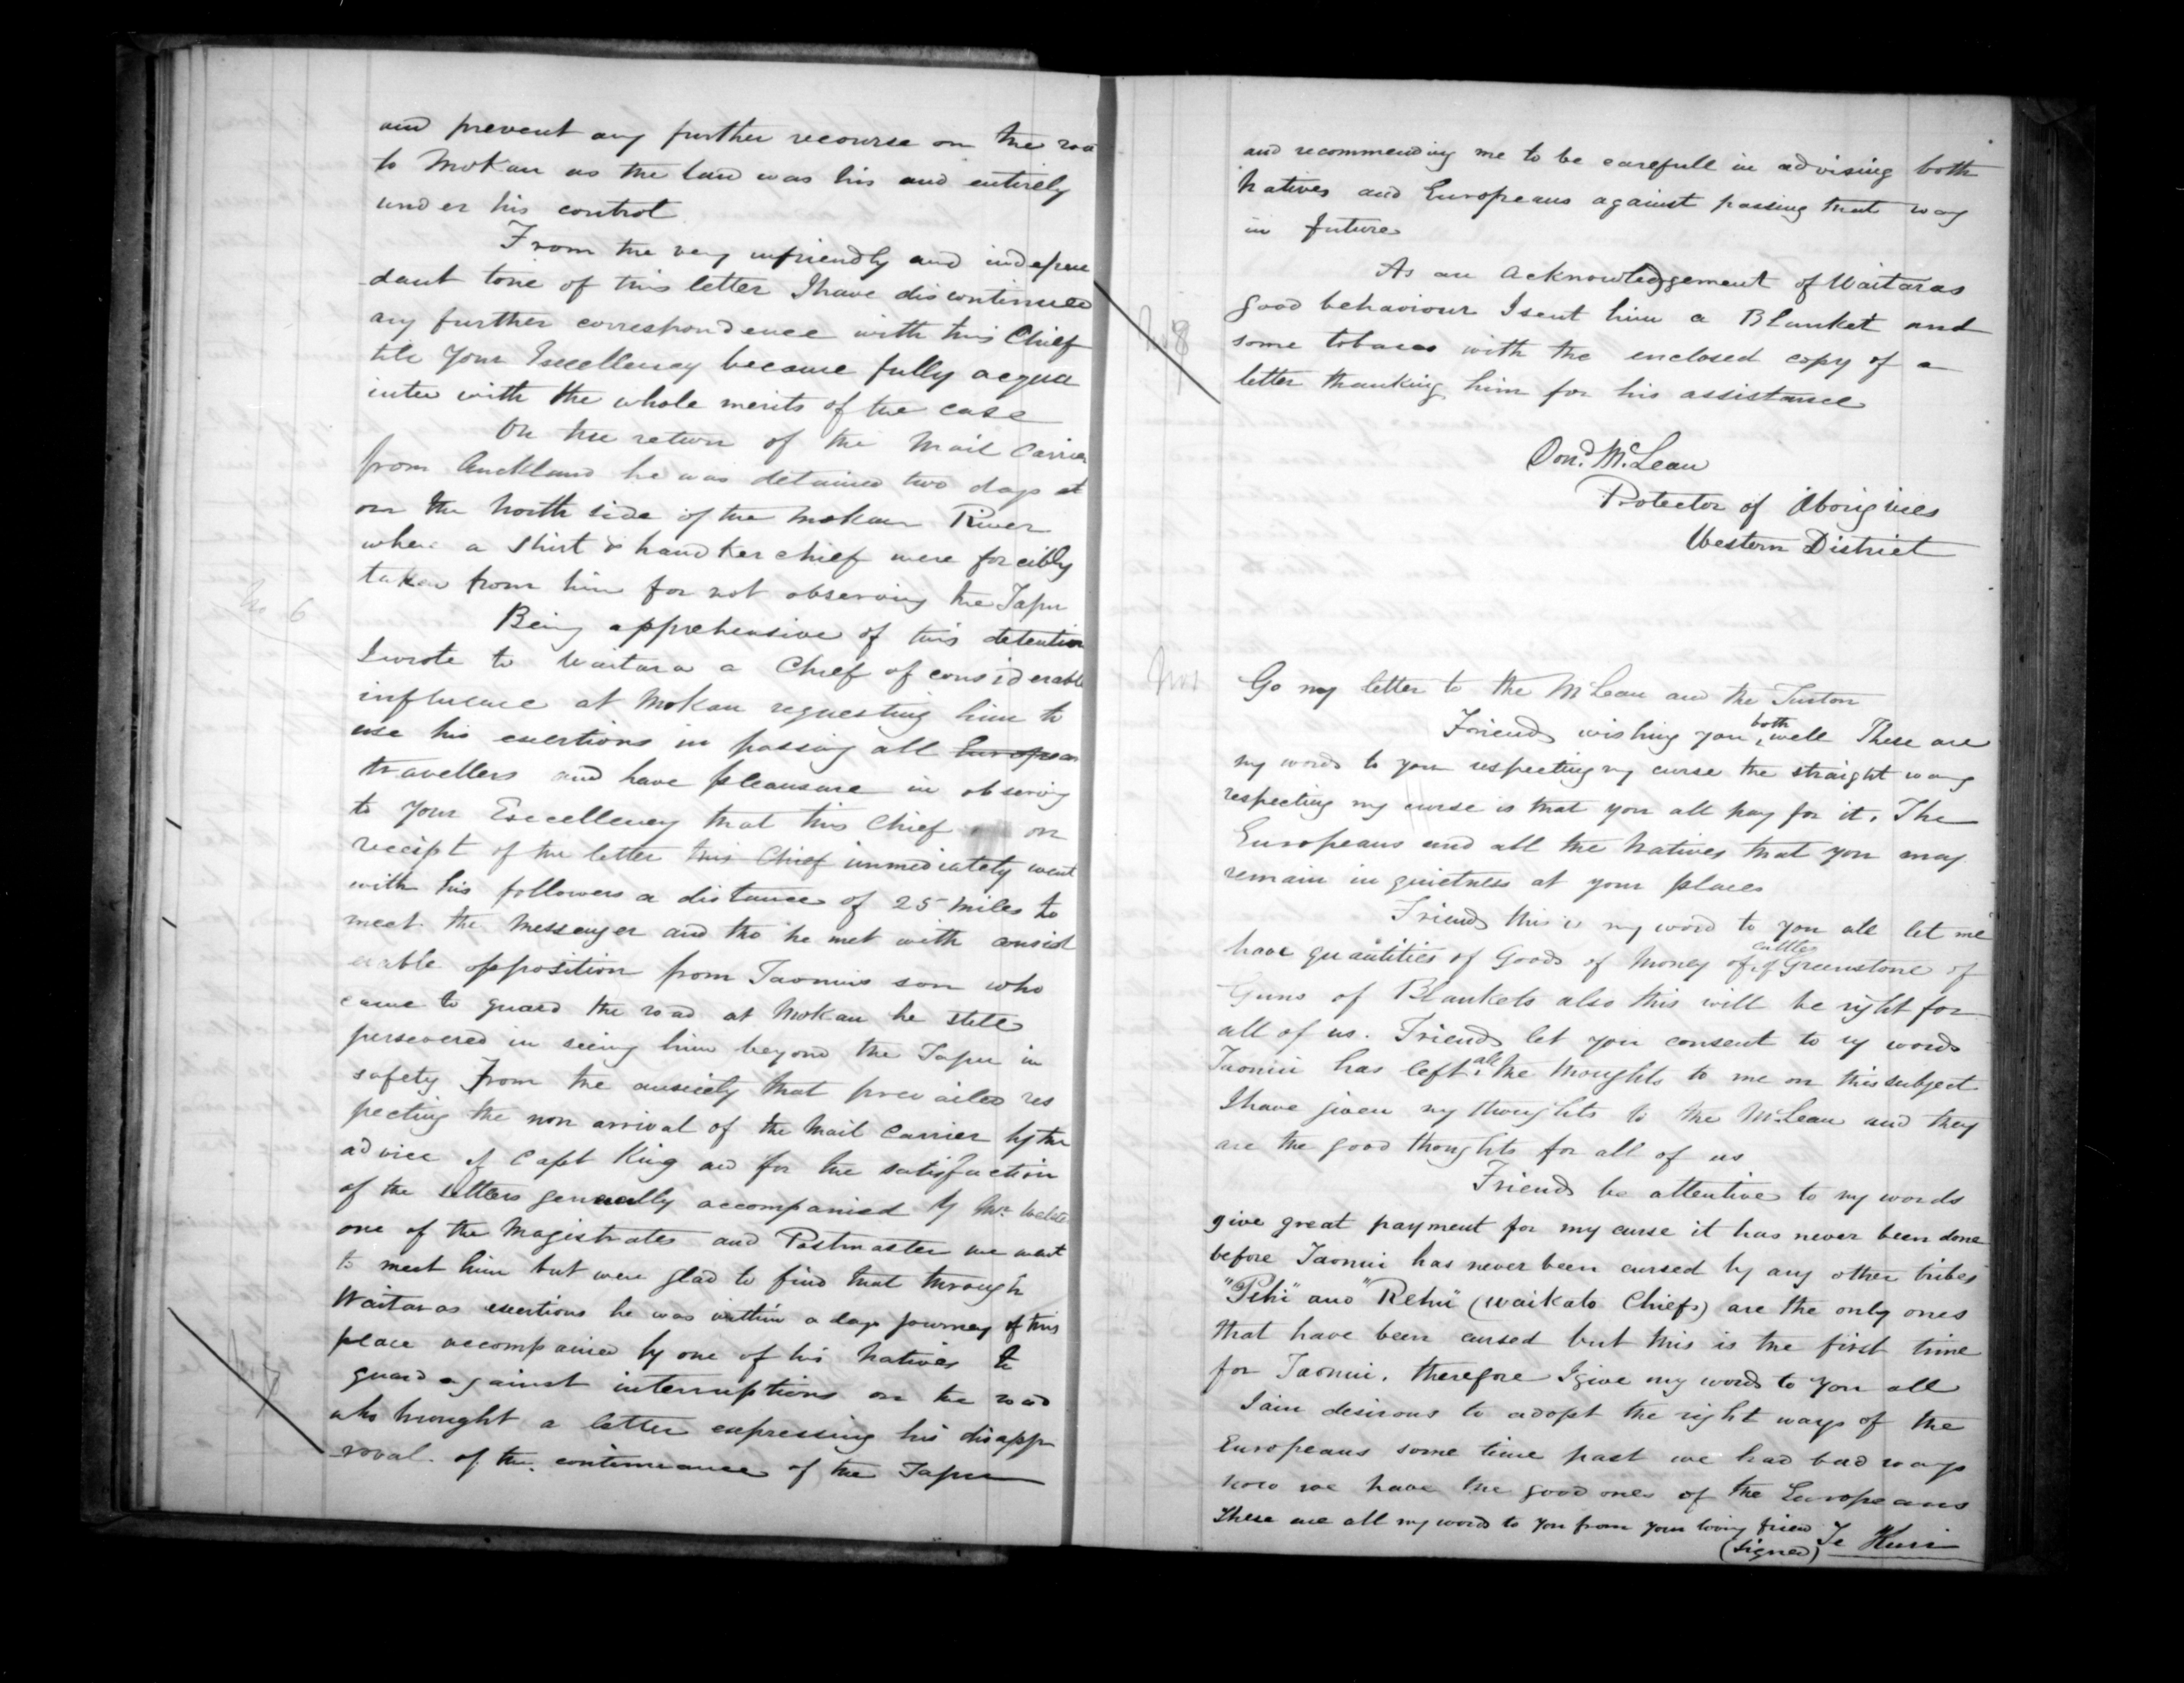 and prevent any further recourse on the roa
to Mokau as the land was his and entirely
under his control
From the very unfriendly and indepen
dant tone of this letter I have discontinued
any further correspondence with this Chief
till Your Excellency became fully acqua
inted with the whole merits of the case
On the return of the Mail Carrier
from Auckland he was detained two days at
on the North side of the Mokau River
where a shirt & handkerchief were forcibly
taken from him for not observing the Tapu
No 6
Being apprehensive of this detention
I wrote to Waitara a Chief of considerable
influence at Mokau requesting him to
use his exertions in passing all European
travellers and have pleasure in observing
to Your Excellency that this Chief on
receipt of the letter this Chief immediately went
with his followers a distance of 25 miles to
meet the Messenger and tho he met with consid
erable opposition from Taonuis son who
came to guard the road at Mokau he still
persevered in seeing him beyond the Tapu in
safety From the anxiety that prevailed res
pecting the non arrival of the Mail Carrier by the
advice of Capt King and for the satisfaction
of the settlers generally accompanied by Mr.
one of the Magistrates and Postmaster we went
to meet him but were glad to find that through
Waitaras exertions he was within a days journey of this
place accompanied by one of his Natives to
guard against interruptions on the road
who brought a letter expressing his disapp
roval of the continuance of the Tapu
7
and recommending me to be carefull in advising both
Natives and Europeans against passing that way
in future
As an acknowledgement of Waitaras
good behaviour I sent him a Blanket and
No 8
some tobacco with the enclosed copy of a
letter thanking him for his assistance
Don.d McLean
Protector of Aborigines
Western District
No 1
Go my letter to the McLean and the Turton
Friends wishing you both well These are
my words to you respecting my curse the straight way
respecting my curse is that you all pay for it. The
Europeans and all the Natives that you may
remain in quietness at your places
Friends this is my word to you all let me
have quantities of Goods of Money of cattle of Greenstone of
Guns of Blankets also this will be right for
all of us. Friends let you consent to my words
Taonui has left all the thoughts to me on this subject
I have given my thoughts to the McLean and they
are the good thoughts for all of us
Friends be attentive to my words
give great payment for my curse it has never been done
before Taonui has never been cursed by any other tribes
"Pehi" and "Rehu" (Waikato Chiefs) are the only ones
that have been cursed but this is the first time
for Taonui. therefore I give my words to you all
I am desirous to adopt the right ways of the
Europeans some time past we had bad ways
now we have the good ones of the Europeans
These are all my words to you from your loving friend
(signed) Te Kuri